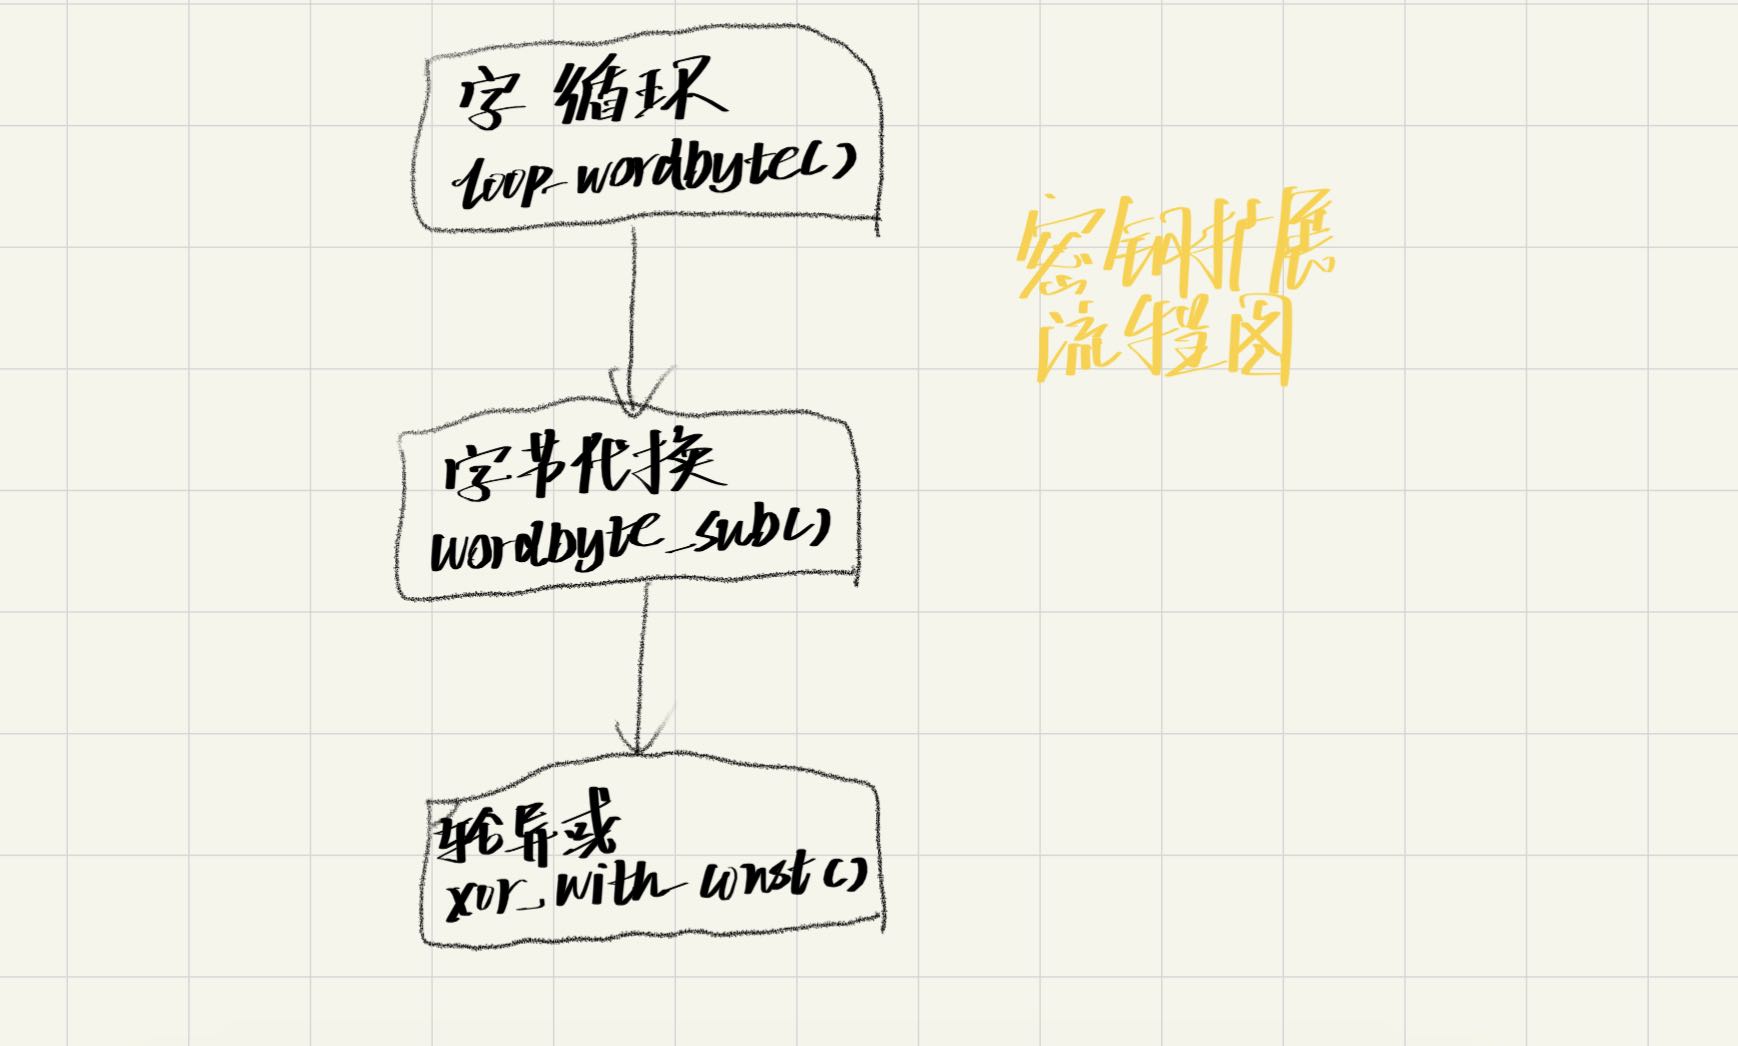 字循环
loop_wordbyte()
密钥扩展
流程图
字节代换
wordbyte_sub()
轮异或
xor_with_const()